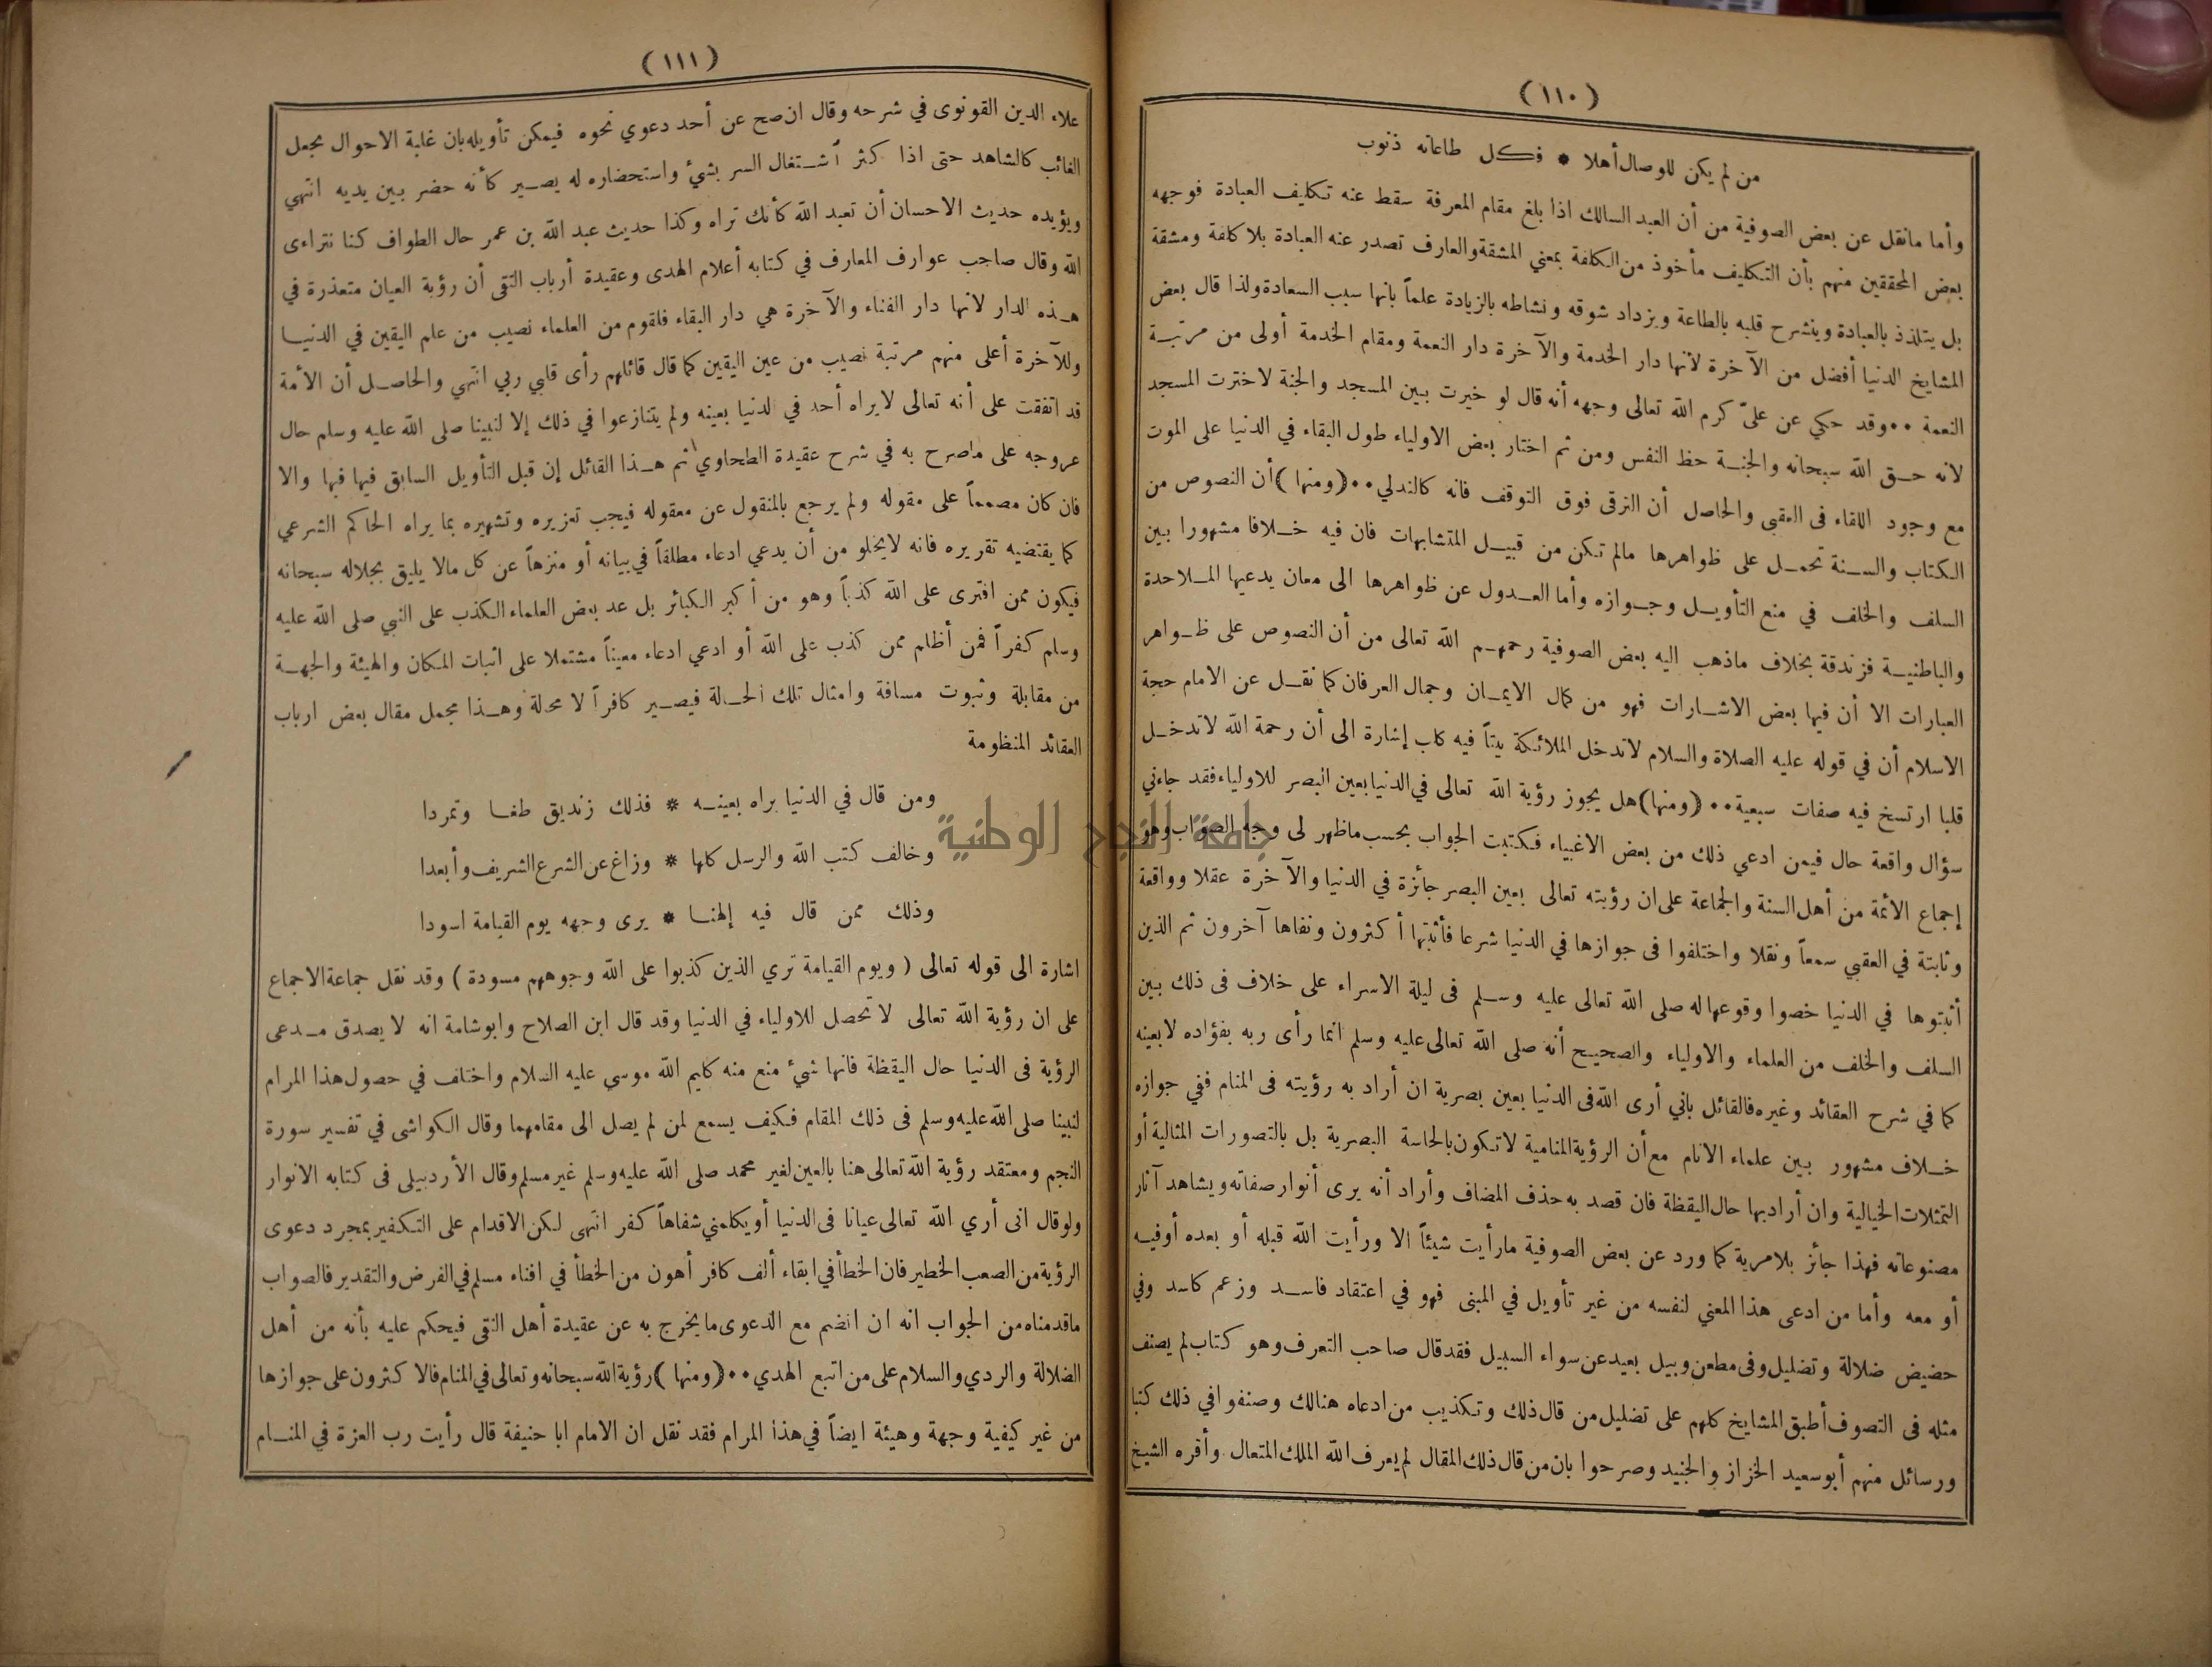 (١١٠)
من لم يكن للوصال أهلا * فكل طاعاته ذنوب
وأما مانقل عن بعض الصوفية من أن العبد السالك اذا بلغ مقام المعرفة سقط عنه تكليف العبادة فوجهه
بعض المحققين منهم بأن التكليف مأخوذ من الكلفة بمعني المشقة والعارف تصدر عنه العبادة بلا كلفة ومشقة
بل يتلذذ بالعبادة وينشرح قلبه بالطاعة ويزداد شوقه ونشاطه بالزيادة علماً بانها سبب السعادة ولذا قال بعض
المشايخ الدنيا أفضل من الآخرة لأنها دار الخدمة والآخرة دار النعمة ومقام الخدمة أولى من مرتبة
النعمة ٠٠ وقد حكي عن علىّ كرم الله تعالى وجهه أنه قال لو خيرت بين المسجد والجنة لاخترت المسجد
لانه حق الله سبحانه والجنة حظ النفس ومن ثم اختار بعض الاولياء طول البقاء في الدنيا على الموت
مع وجود اللقاء فى العقبى والحاصل أن الترقى فوق التوقف فانه كالتدلي ٠٠ (ومنها) أن النصوص من
الكتاب والسنة تحمل على ظواهرها مالم تكن من قبيل المتشابهات فان فيه خلافا مشهورا بين
السلف والخلف في منع التأويل وجوازه وأما العدول عن ظواهرها الى معان يدعيها الملاحدة
والباطنية فزندقة بخلاف ماذهب اليه بعض الصوفية رحمهم الله تعالى من أن النصوص على ظواهر
العبارات الا أن فيها بعض الاشارات فهو من كمال الايمان وجمال العرفان كما نقل عن الامام حجة
الاسلام أن في قوله عليه الصلاة والسلام لاتدخل الملائكة بيتاً فيه كلب إشارة الى أن رحمة الله لاتدخل
قلبا ارتسخ فيه صفات سبعية ٠٠ (ومنها) هل يجوز رؤية الله تعالى في الدنيا بعين البصر للاولياء فقد جاءني
سؤال واقعة حال فيمن ادعي ذلك من بعض الاغبياء فكتبت الجواب بحسب ماظهر لى وجه الصواب وهو
إجماع الأئمة من أهل السنة والجماعة على ان رؤيته تعالى بعين البصر جائزة في الدنيا والآخرة عقلا وواقعة
وثابتة في العقبي سمعاً ونقلا واختلفوا فى جوازها في الدنيا شرعا فأثبتها أكثرون ونفاها آخرون ثم الذين
أثبتوها في الدنيا خصوا وقوعها له صلى الله تعالى عليه وسلم فى ليلة الاسراء على خلاف فى ذلك بين
السلف والخلف من العلماء والاولياء والصحيح أنه صلى الله تعالى عليه وسلم انما رأى ربه بفؤاده لا بعينه
كما في شرح العقائد وغيره فالقائل باني أرى الله فى الدنيا بعين بصرية ان أراد به رؤيته فى المنام ففي جوازه
خلاف مشهور بين علماء الانام مع أن الرؤية المنامية لاتكون بالحاسة البصرية بل بالتصورات المثالية أو
التمثلات الخيالية وان أراد بها حال اليقظة فان قصد به حذف المضاف وأراد أنه يرى أنوار صفاته ويشاهد آثار
مصنوعاته فهذا جائز بلا مرية كما ورد عن بعض الصوفية مارأيت شيئاً الا ورأيت الله قبله أو بعده أو فيه
أو معه وأما من ادعى هذا المعني لنفسه من غير تأويل في المبنى فهو في اعتقاد فاسد وزعم كاسد وفي
حضيض ضلالة وتضليل وفى مطعن وبيل بعيد عن سواء السبيل فقد قال صاحب التعرف وهو كتاب لم يصنف
مثله فى التصوف أطبق المشايخ كلهم على تضليل من قال ذلك وتكذيب من ادعاه هنالك وصنفوا في ذلك كتبا
ورسائل منهم أبو سعيد الخزاز والجنيد وصرحوا بان من قال ذلك المقال لم يعرف الله الملك المتعال وأقره الشيخ
(١١١)
علاء الدين القونوى في شرحه وقال ان صح عن أحد دعوي نحوه فيمكن تأويله بان غلبة الاحوال تجعل
الغائب كالشاهد حتى اذا كثر اشتغال السر بشيء واستحضاره له يصير كأنه حضر بين يديه انتهي
ويؤيده حديث الاحسان أن تعبد الله كأنك تراه وكذا حديث عبد الله بن عمر حال الطواف كنا نتراءى
الله وقال صاحب عوارف المعارف في كتابه أعلام الهدى وعقيدة أرباب التقى أن رؤية العيان متعذرة في
هذه الدار لانها دار الفناء والآخرة هي دار البقاء فلقوم من العلماء نصيب من علم اليقين في الدنيا
وللآخرة أعلى منهم مرتبة نصيب من عين اليقين كما قال قائلهم رأى قلبي ربي انتهي والحاصل أن الأمة
قد اتفقت على أنه تعالى لايراه أحد في الدنيا بعينه ولم يتنازعوا في ذلك إلا لنبينا صلى الله عليه وسلم حال
عروجه على ماصرح به في شرح عقيدة الطحاوي ثم هذا القائل إن قبل التأويل السابق فيها فبها والا
فان كان مصمماً على مقوله ولم يرجع بالمنقول عن معقوله فيجب تعزيره وتشهيره بما يراه الحاكم الشرعي
كما يقتضيه تقريره فانه لايخلو من أن يدعي ادعاء مطلقاً في بيانه أو منزهاً عن كل مالا يليق بجلاله سبحانه
فيكون ممن افترى على الله كذباً وهو من أكبر الكبائر بل عد بعض العلماء الكذب على النبي صلى الله عليه
وسلم كفراً فمن أظلم ممن كذب على الله أو ادعي ادعاء معيناً مشتملا على اثبات المكان والهيئة والجهة
من مقابلة وثبوت مسافة وامثال تلك الحالة فيصير كافراً لا محالة وهذا مجمل مقال بعض ارباب
العقائد المنظومة
ومن قال في الدنيا يراه بعينه * فذلك زنديق طغا وتمردا
وخالف كتب الله والرسل كلها * وزاغ عن الشرع الشريف وأبعدا
وذلك ممن قال فيه إلهنا * يرى وجهه يوم القيامة اسودا
اشارة الى قوله تعالى ( ويوم القيامة تري الذين كذبوا على الله وجوههم مسودة ) وقد نقل جماعة الاجماع
على ان رؤية الله تعالى لا تحصل للاولياء في الدنيا وقد قال ابن الصلاح وابو شامة انه لا يصدق مدعى
الرؤية فى الدنيا حال اليقظة فانها شيء منع منه كليم الله موسي عليه السلام واختلف في حصول هذا المرام
لنبينا صلى الله عليه وسلم فى ذلك المقام فكيف يسمع لمن لم يصل الى مقامهما وقال الكواشى في تفسير سورة
النجم ومعتقد رؤية الله تعالى هنا بالعين لغير محمد صلى الله عليه وسلم غير مسلم وقال الأردبيلى فى كتابه الانوار
ولو قال انى أري الله تعالى عيانا فى الدنيا أو يكلمني شفاهاً كفر انتهى لكن الاقدام على التكفير بمجرد دعوى
الرؤية من الصعب الخطير فان الخطأ في ابقاء ألف كافر أهون من الخطأ في افناء مسلم في الفرض والتقدير فالصواب
ماقدمناه من الجواب انه ان انضم مع الدعوى ما يخرج به عن عقيدة أهل التقى فيحكم عليه بأنه من أهل
الضلالة والردي والسلام على من اتبع الهدي ٠٠ (ومنها) رؤية الله سبحانه وتعالى في المنام فالاكثرون على جوازها
من غير كيفية وجهة وهيئة ايضاً في هذا المرام فقد نقل ان الامام ابا حنيفة قال رأيت رب العزة في المنام
جامعة النجاح الوطنية